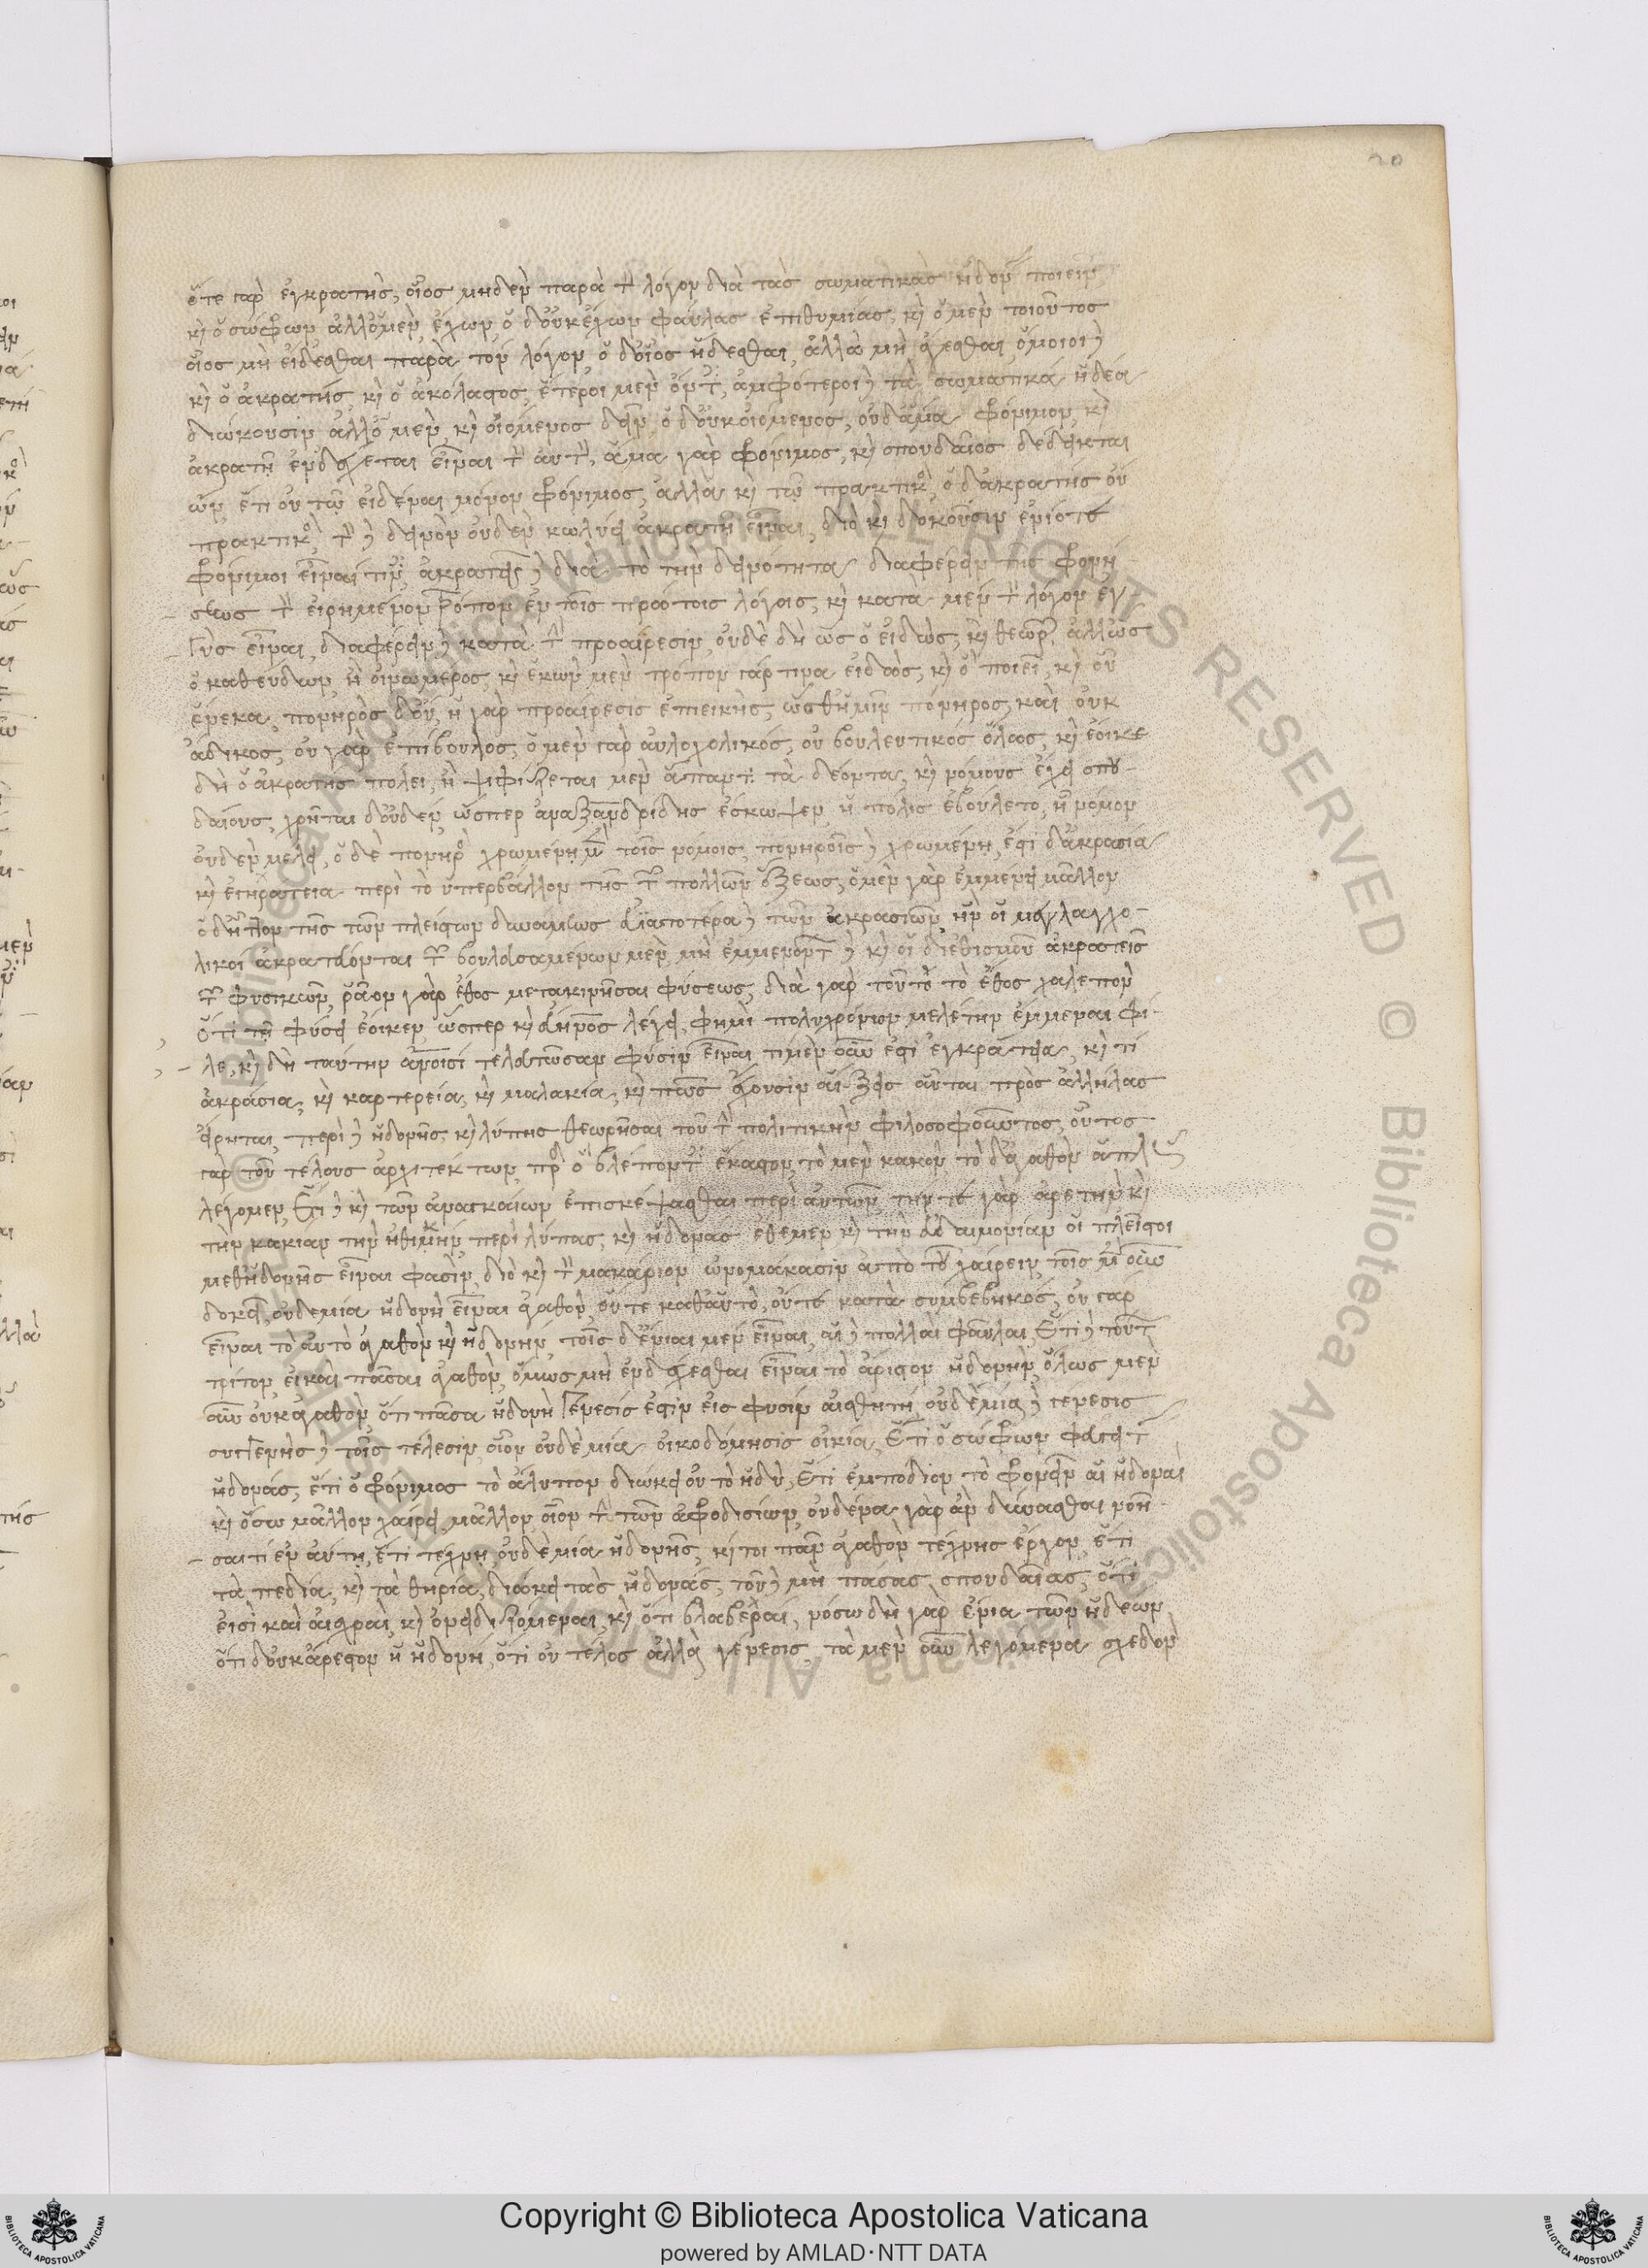 20
ὅτε γὰρ ἐγκρατὴς, οἷος μηδὲν παρὰ τὸν λόγον διὰ τὰς σωματικὰς ἡδονὰς ποιεῖν,
κὶ ὁ σώφρων, ἀλλ' ὁ μὲν, ἔχων, ὁ δ' οὐκ ἔχων φαύλας ἐπιθυμίας, κὶ ὁ μὲν τοιοῦτος
οἷος μὴ ἥδεσθαι παρὰ τὸν λόγον, ὁ δ' οἷος ἥδεσθαι, ἀλλὰ μὴ ἄγεσθαι, ὅμοιοι δὲ
κὶ ὁ ἀκρατής κὶ ὁ ἀκόλαστος, ἕτεροι μὲν ὄντες, ἀμφότεροι δὲ τὰ σωματικά ἡδέα
διώκουσιν ἀλλ' ὁ μὲν, κὶ οἰόμενος δεῖν, ὁ δ' οὐκ οἰόμενος, οὐδ' ἅμα φρόνιμον, κὶ
ἀκρατῆ ἐνδέχεται εἶναι τὸν αὐτὸν, ἅμα γὰρ φρόνιμος, κὶ σπουδαῖος δέδεικται
ὤν, ἔτι οὐ τῷ εἰδέναι μόνον φρόνιμος, ἀλλὰ κὶ τῷ πρακτικὸς, ὁ δ' ἀκρατής οὐ
πρακτικὸς, τὸν δὲ δεινὸν οὐδὲν κωλύει ἀκρατῆ εἶναι, διὸ κὶ δοκοῦσιν ἐνίοτε
φρόνιμοι εἶναί τινες ἀκρατεῖς δὲ διὰ τὸ τὴν δεινότητα διαφέρειν τῆς φρονή-
σεως τὸν εἰρημένον τρόπον ἐν τοῖς πρώτοις λόγοις, κὶ κατὰ μὲν τὸν λόγον ἐγ-
γὺς εἶναι, διαφέρειν δὲ κατὰ τὴν προαίρεσιν, οὐδὲ δὴ ὡς ὁ εἰδὼς, κὶ θεωρῶν ἀλλ' ὡς
ὁ καθεύδων, ἢ οἰνωμένος, κὶ ἑκὼν μὲν τρόπον γάρ τινα εἰδὼς, κὶ ὃ ποιεῖ, κὶ οὗ
ἕνεκα, πονηρὸς δ' οὔ, ἡ γὰρ προαίρεσις ἐπιεικὴς, ὥσθ' ἡμιπόνηρος, καὶ οὐκ
ἄδικος, οὐ γὰρ ἐπίβουλος, ὁ μὲν γὰρ αὐλογολικός, οὐ βουλευτικός ὅλως, κὶ ἔοικε
δὴ ὁ ἀκρατὴς πόλει, ἣ ψιφίζεται μὲν ἅπαντα τὰ δέοντα, κὶ νόμους ἔχει σπου-
δαίους, χρῆται δ' οὐδέν, ὥσπερ ἀναξανδρίδης ἔσκωψεν, ἡ πόλις ἐβούλετο, ᾗ νόμον
οὐδὲν μέλει, ὁ δὲ πονηρὸς χρωμένῃ μὲν τοῖς νόμοις, πονηροῖς δὲ χρωμένη, ἔστι δ' ἀκρασία
κὶ ἐγκράτεια περὶ τὸ ὑπερβάλλον τῆς τῶν πολλῶν ἕξεως, ὁ μὲν γὰρ ἐμμένει μᾶλλον
ὁ δ' ἧττον τῆς τῶν πλείστων δυνάμεως εὐιατοτέρα δὲ τῶν ἀκρασιῶν, ἣν οἱ μελαγχο-
λικοὶ ἀκρατεύονται τῶν βουλευσαμένων μὲν, μὴ ἐμμενόντων δὲ κὶ οἱ δι' ἐθισμοῦ ἀκρατεῖς
τῶν φυσικῶν, ῥᾷον γὰρ ἔθος μετακινῆσαι φύσεως, διὰ γὰρ τοῦτο τὸ ἔθος χαλεπὸν
ὅτι τῇ φύσει ἔοικεν, ὥσπερ κὶ εὔηνος λέγει, φημὶ πολυχρόνιον μελέτην ἔμμεναι φί-
λε, κὶ δὴ ταύτην ἀνθρώποισι τελευτῶσαν φύσιν εἶναι τί μὲν οὖν ἐστι ἐγκράτεια, κὶ τί
ἀκράσια, κὶ καρτερεία, κὶ μαλακία, κὶ πῶς ἔχουσιν αἱ ἕξεις αὗται πρὸς ἀλλήλας
εἴρηται, περὶ δὲ ἡδονῆς, κὶ λύπης θεωρῆσαι τοῦ τὴν πολιτικὴν φιλοσοφοῦντος, οὗτος
γὰρ τοῦ τέλους ἀρχιτέκτων, πρὸς ὃ βλέποντες ἕκαστον, τὸ μὲν κακὸν, τὸ δ' ἀγαθὸν ἁπλῶς
λέγομεν, ἔτι δὲ κὶ τῶν ἀναγκαίων ἐπισκέψασθαι περὶ αὐτῶν, τήν τε γὰρ ἀρετὴν κὶ
τὴν κακίαν τὴν ἠθικὴν περὶ λύπας, κὶ ἡδονὰς ἔθεμεν κὶ τὴν εὐδαιμονίαν οἱ πλεῖστοι
μεθ' ἡδονῆς εἶναι φασὶν, διὸ κὶ τὸν μακάριον ὠνομάκασιν ἀπὸ τοῦ χαίρειν, τοῖς μὲν οὖν
δοκεῖ, οὐδεμία ἡδονὴ εἶναι ἀγαθὸν, οὔτε καθ' αὑτὸ, οὔτε κατὰ συμβεβηκός, οὐ γὰρ
εἶναι τὸ αὐτὸ ἀγαθὸν κὶ ἡδονήν, τοῖς δ' ἔνιαι μὲν εἶναι, αἱ δὲ πολλαὶ φαῦλαι, ἔτι δὲ τούτων
τρίτον, εἰ καὶ πᾶσαι ἀγαθὸν, ὅμως μὴ ἐνδέχεσθαι εἶναι τὸ ἄριστον ἡδονὴν, ὅλως μὲν
οὖν οὐκ ἀγαθὸν, ὅτι πᾶσα ἡδονὴ γένεσίς ἐστιν εἰς φύσιν αἰσθητή, οὐδεμία δὲ γένεσις
συγγενὴς δὲ τοῖς τέλεσιν, οἷον οὐδεμία οἰκοδόμησις οἰκία, ἔτι ὁ σώφρων φεύγει τὰς
ἡδονάς, ἔτι ὁ φρόνιμος τὸ ἄλυπον διώκει οὐ τὸ ἡδὺ, ἔτι ἐμπόδιον τὸ φρονεῖν αἱ ἡδοναί
κὶ ὅσω μᾶλλον χαίρει, μᾶλλον, οἷον τὴν τῶν ἀφροδισίων, οὐδένα γὰρ ἂν δύνασθαι νοῆ-
σαι τί ἐν αὐτῇ, ἔτι τέχνη οὐδεμία ἡδονῆς, κίτοι πᾶν ἀγαθὸν τέχνης ἔργον, ἔτι
τὰ πεδία, κὶ τὰ θηρία, διώκει τὰς ἡδονάς, τοῦ δὲ μὴ πάσας σπουδαίας, ὅτι
εἰσὶ καὶ αἰσχραὶ, κὶ ὀνειδιζόμεναι, κὶ ὅτι βλαβεραί, νόσωδη γὰρ ἔνια τῶν ἡδέων
ὅτι δ' οὐκ ἄριστον ἡ ἡδονή, ὅτι οὐ τέλος ἀλλὰ γένεσις, τὰ μὲν οὖν λεγόμενα σχεδὸν
Copyright © Biblioteca Apostolica Vaticana
powered by AMLAD·NTT DATA